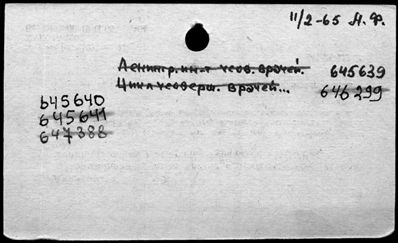 11/2-65 М.Ф.
Ленингр. ин-т усов. врачей. 645639
Цикл усоверш. врачей... 646299
645640
645641
647388